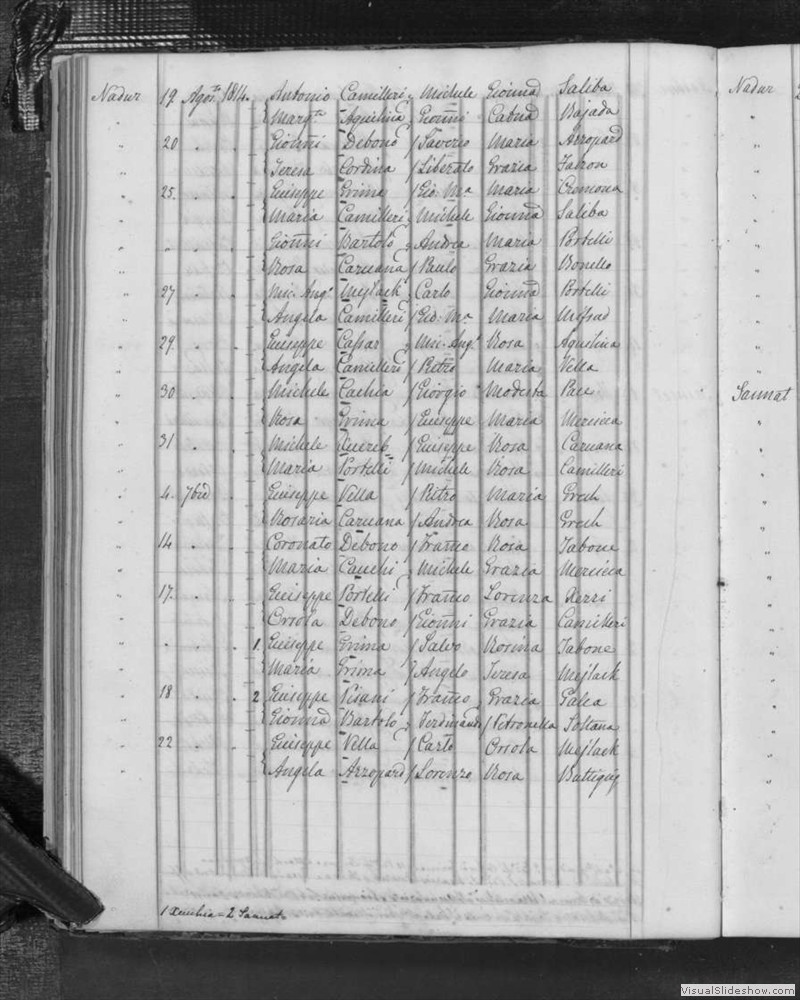 Nadur 19. Agos.to 1814. Antonio Camilleri Michele Gionna Saliba
" Marg.ta Aquilina Gionni Catna Bajada
" 20 " " Gionni Debono Saverio Maria Azzopard
" Teresa Cordina Liberato Grazia
" 25. " " Guiseppe Grima Gio: Ma Maria Cremona
" Maria Camilleri Michele Gionna Saliba
" " " " Gionni Bartolo Andrea Maria Portelli
" Rosa Caruana Paulo Grazia Bonello
" 27 " " Mic. Ang.o Mejlack Carlo Gionna Portelli
" Angela Camilleri Gio: Ma Maria Mifsud
" 29. " " Guiseppe Cassar Mic. Ang.o Rosa Aquilina
" Angela Camilleri Pietro Maria Vella
" 30 " " Michele Cachia Giorgio Modesta Pace
" Rosa Grima Guiseppe Maria Mercieca
" 31 " " Michele Querib Guiseppe Rosa Caruana
" Maria Portelli Michele Rosa Camilleri
" 4. 7bre " Guiseppe Vella Pietro Maria Grech
" Rosaria Caruana Andrea Rosa Grech
" 14 " " Coronato Debono Franco Rosa Tabone
" Maria Cauchi Michele Grazia Mercieca
" 17. " " Guiseppe Portelli Franco Lorenza Xerri
" Orsola Debono Gionni Grazia Camilleri
" " " " 1. Guiseppe Grima Salvo Rosina Tabone
" Maria Grima Angelo Teresa Mejlack
" 18 " " 2 Guiseppe Pisani Franco Grazia Galea
" Gionna Bartolo Ferdinando Petronella Soltana
" 22 " " Guiseppe Vella Carlo Orsola Mejlack
" Angela Azzopard Lorenzo Rosa Buttigig
1 Xeuchia = 2 Sannat
Nadur
Sannat
VisualSlideshow.com